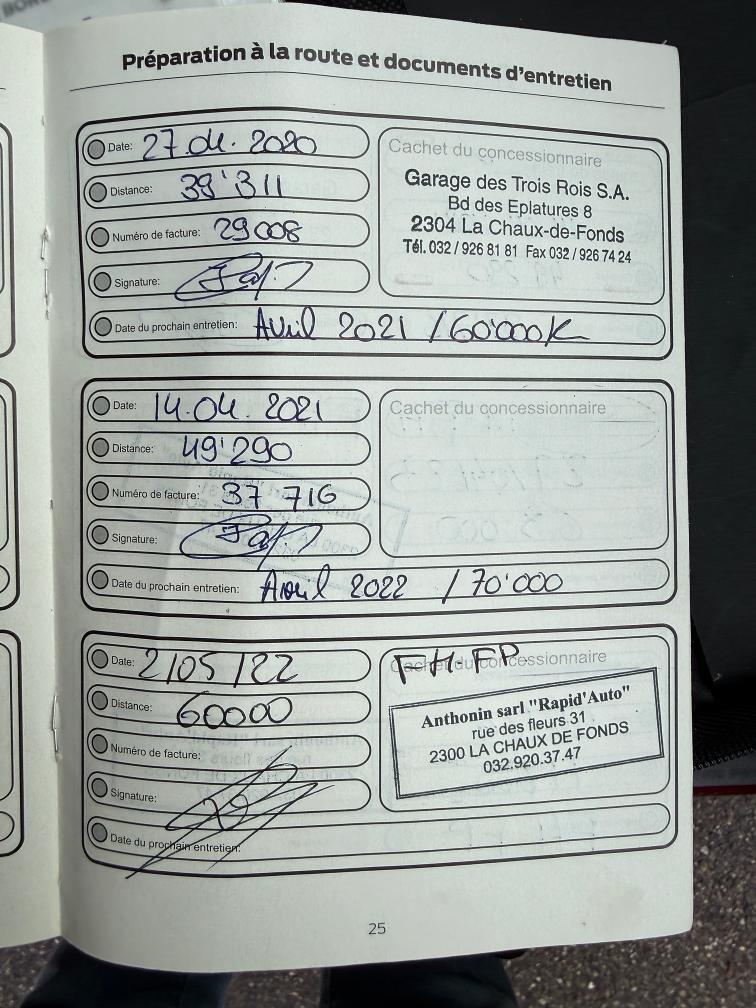 Préparation à la route et documents d'entretien
Date: 27.04.2020
Distance: 39'311
Numéro de facture: 29008
Signature:
Date du prochain entretien: Avril 2021 / 60'000K
Cachet du concessionnaire
Garage des Trois Rois S.A.
Bd des Eplatures 8
2304 La Chaux-de-Fonds
Tél. 032 / 926 81 81 Fax 032 / 926 74 24
Date: 14.04.2021
Distance: 49'290
Numéro de facture: 37 716
Signature:
Date du prochain entretien: Avril 2022 / 70'000
Cachet du concessionnaire
Date: 2/05/22
Distance: 60000
Numéro de facture:
Signature:
Date du prochain entretien:
Cachet du concessionnaire
FH-FP
Anthonin sarl "Rapid'Auto"
rue des fleurs 31
2300 LA CHAUX DE FONDS
032.920.37.47
25